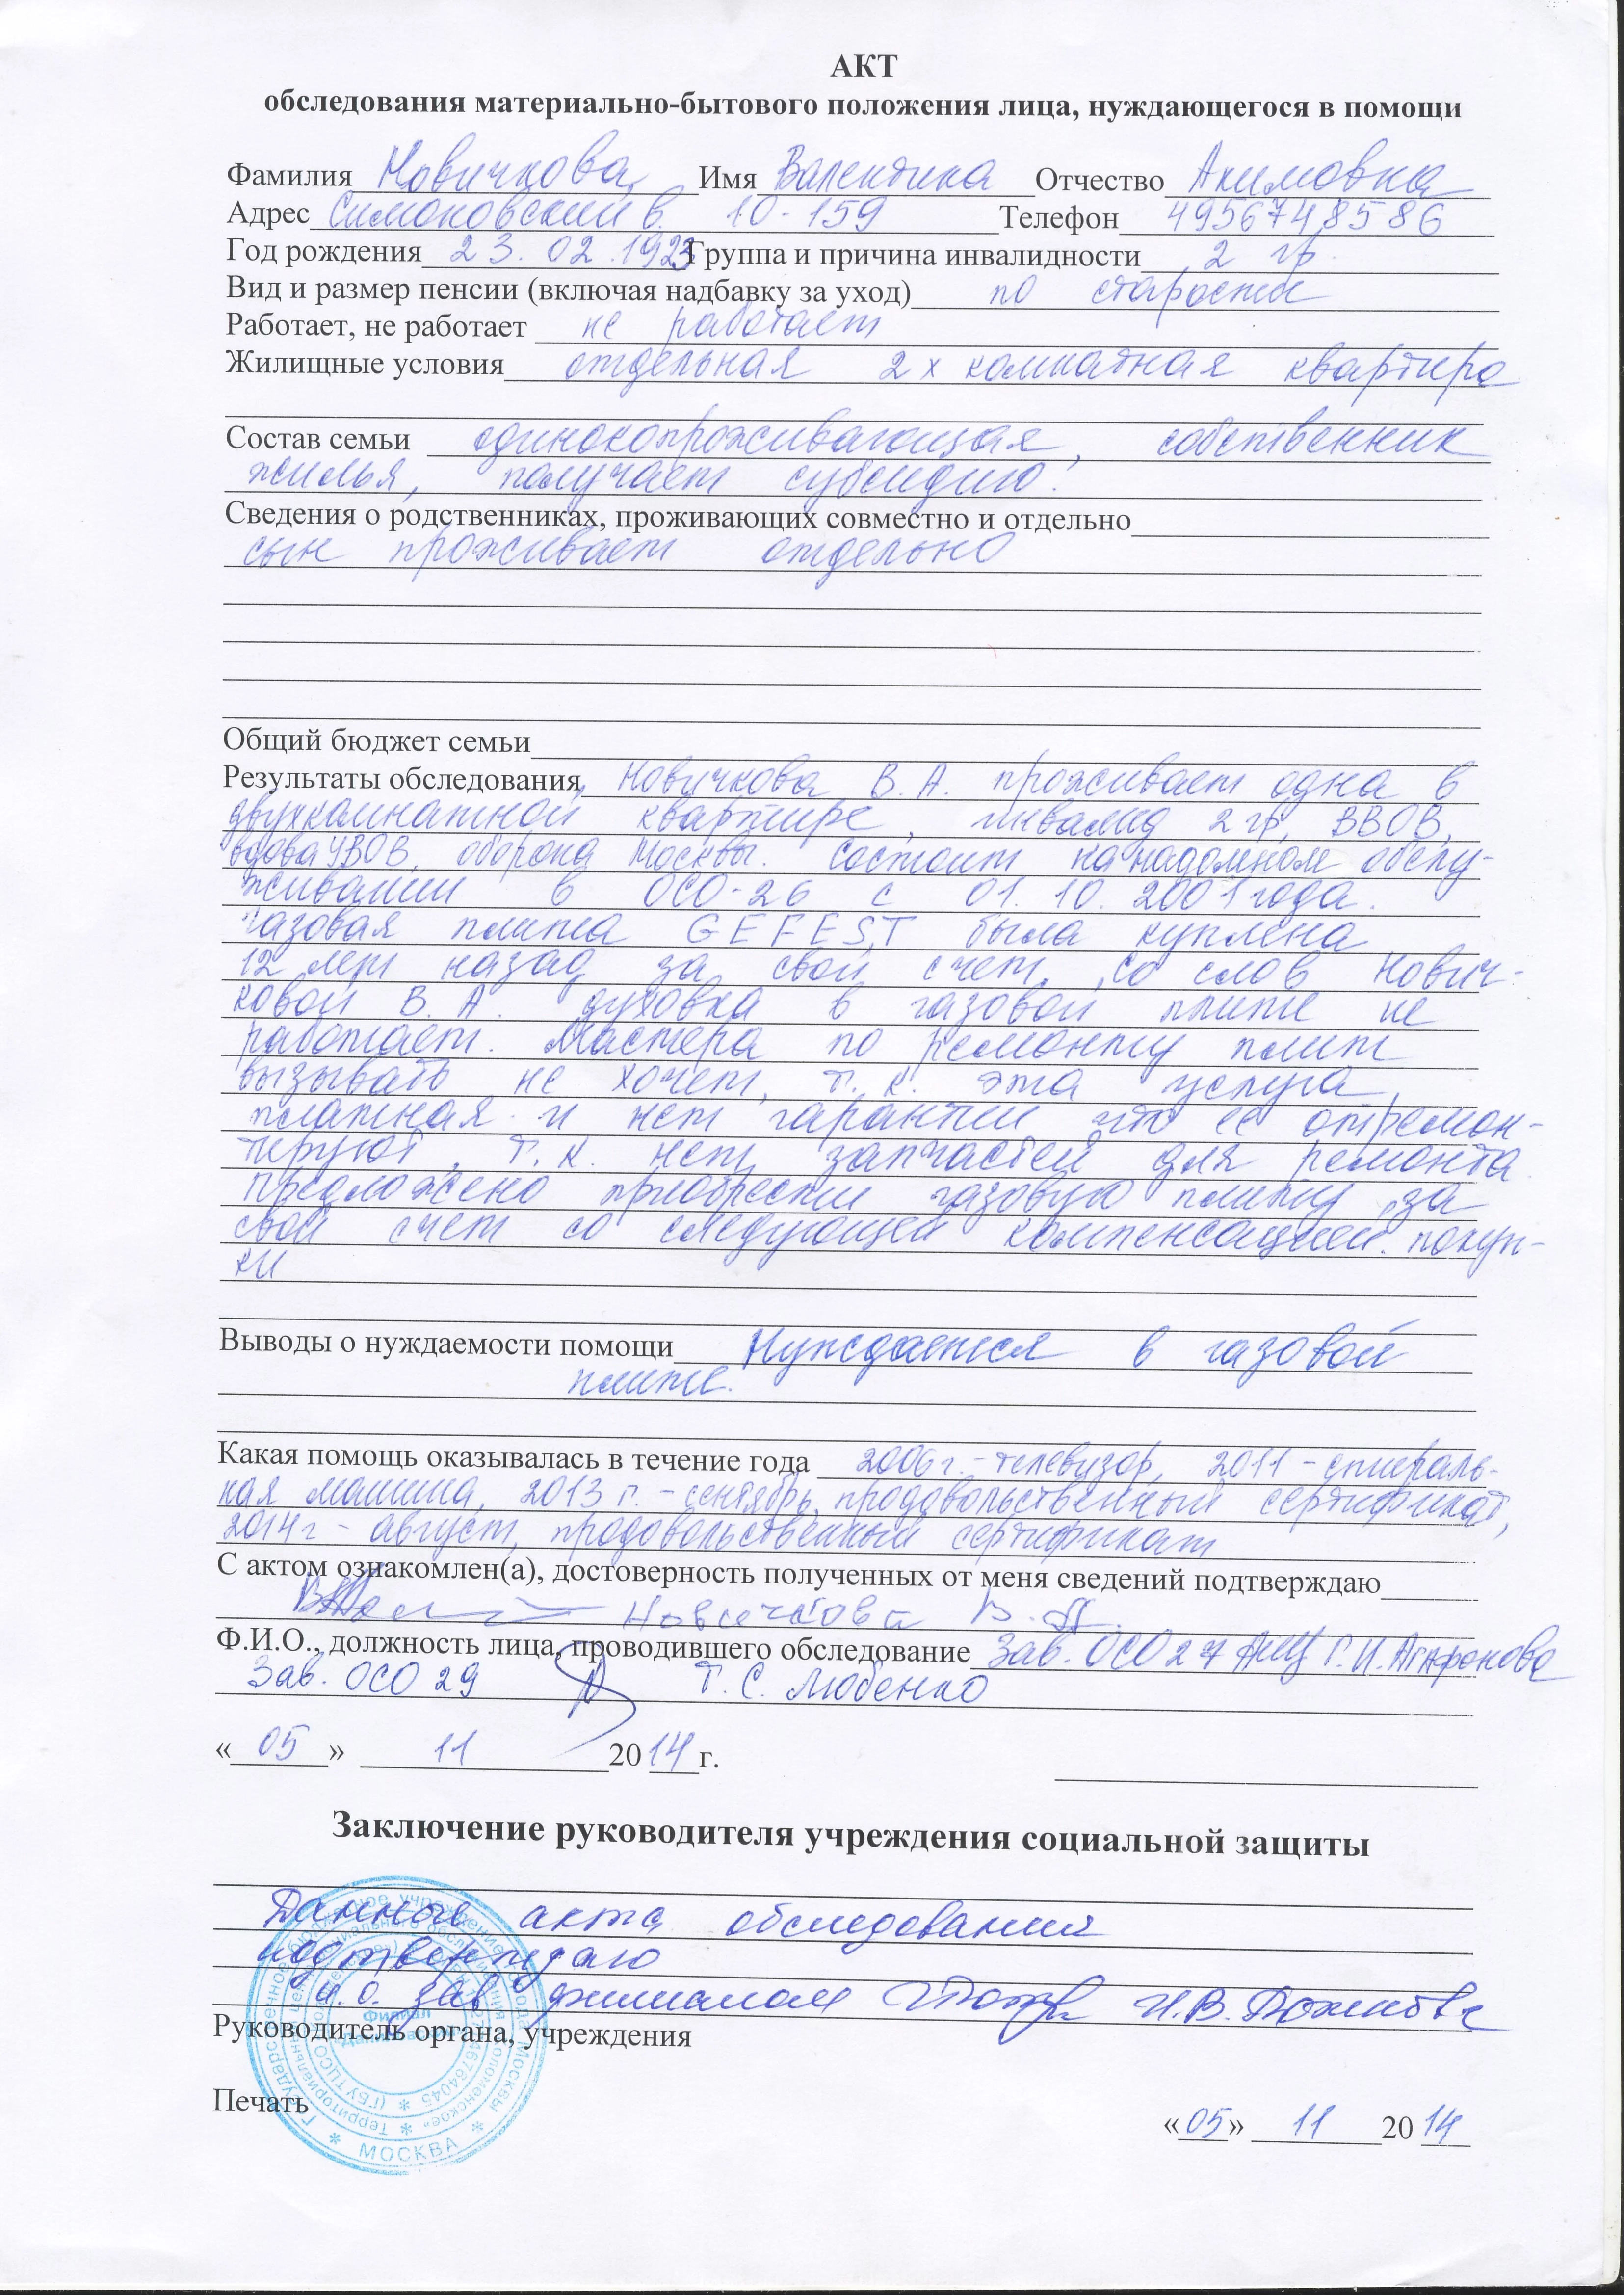 АКТ
обследования материально-бытового положения лица, нуждающегося в помощи
Фамилия Новичкова Имя Валентина Отчество Акимовна
Адрес Симоновский в. 10-159 Телефон 4956748586
Год рождения 23.02.1923 Группа и причина инвалидности 2 гр.
Вид и размер пенсии (включая надбавку за уход) по старости
Работает, не работает не работает
Жилищные условия отдельная 2х комнатная квартира
Состав семьи одинокопроживающая, собственник
жилья, получает субсидию.
Сведения о родственниках, проживающих совместно и отдельно
сын проживает отдельно
Общий бюджет семьи
Результаты обследования Новичкова В.А. проживает одна в
двухкомнатной квартире, инвалид 2 гр, ВВОВ,
вдова УВОВ, оборона Москвы. Состоит на надомном обслу-
живании в ОСО-26 с 01.10.2001 года.
Газовая плита GEFEST была куплена
12 лет назад за свой счет, со слов Нович-
ковой В.А. духовка в газовой плите не
работает. Мастера по ремонту плит
вызывать не хочет, т.к. эта услуга
платная и нет гарантии что ее отремон-
тируют, т.к. нет запчастей для ремонта
предложено приобрести газовую плиту за
свой счет со следующей компенсацией покуп-
ки
Выводы о нуждаемости помощи Нуждается в газовой
плите.
Какая помощь оказывалась в течение года 2006г.-телевизор, 2011-стираль-
ная машина, 2013г.-сентябрь, продовольственный сертификат,
2014г-август, продовольственный сертификат
С актом ознакомлен(а), достоверность полученных от меня сведений подтверждаю
Новичкова В.А.
Ф.И.О., должность лица, проводившего обследование Зав. ОСО 27 Г.И. Агафонова
Зав. ОСО 29 Т.С. Любенко
«05» 11 2014 г.
Заключение руководителя учреждения социальной защиты
Данные акта обследования
подтверждаю
и.о. зав филиалом И.В.
Руководитель органа, учреждения
Печать
«05» 11 2014
Филиал
МОСКВА